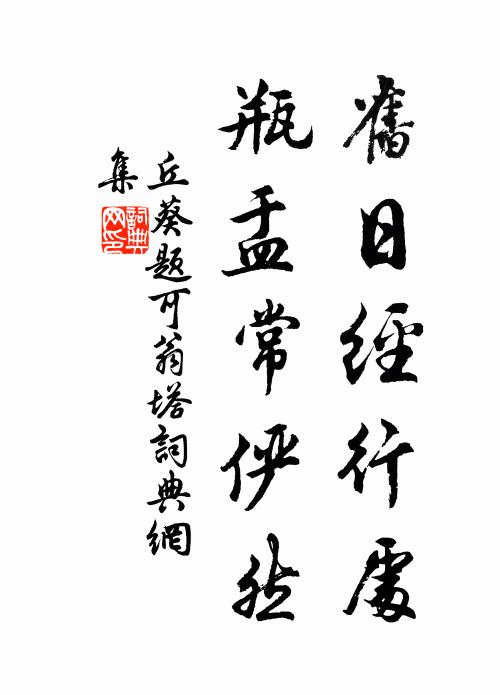 舊日經行處
瓶盂常儼然
丘葵題可翁塔詞典網
集
詞典
网印